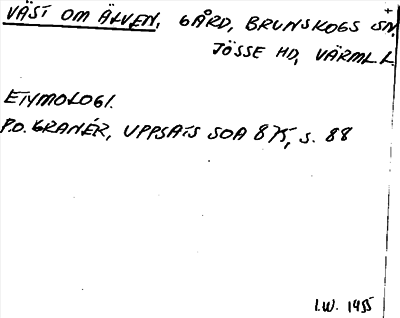 VÄST OM ÄLVEN, GÅRD, BRUNSKOGS SN,
JÖSSE HD, VÄRML L.
ETYMOLOGI.
P.O. GRANÉR, UPPSATS SOA 875, s. 88
I.W. 1955